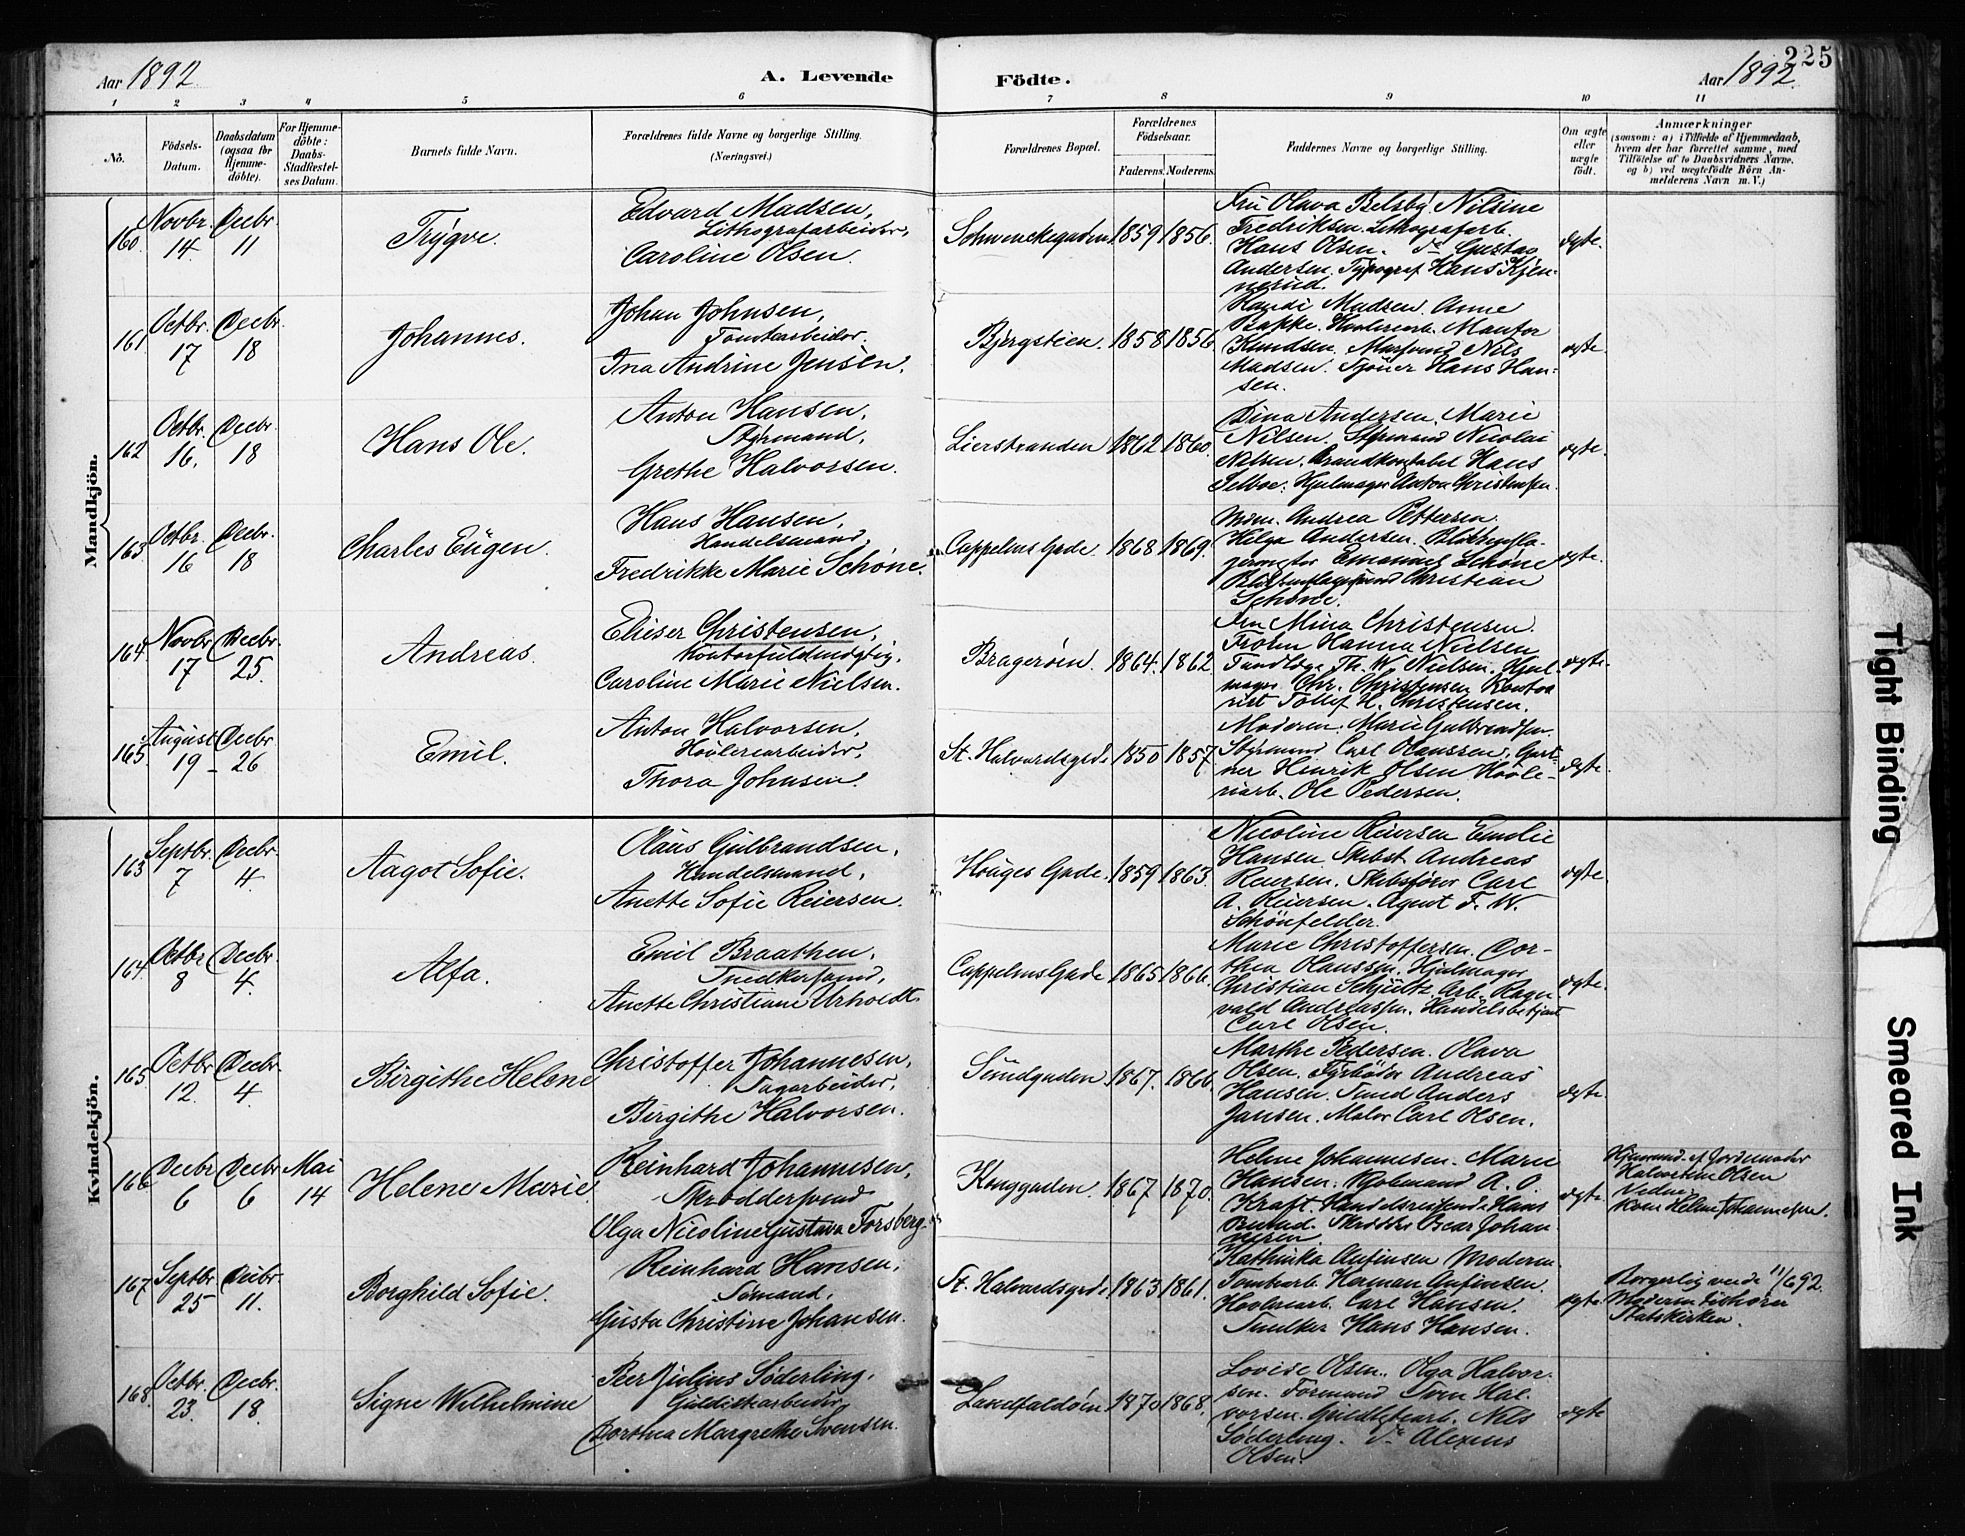 225
Aar 1892. A. Levende Födte. Aar 1892.
1 2 3 4 5 6 7 8 9 10 11
No.
Födsels-
Datum.
Daabsdatum
(ogsaa for
Hjemme-
döbte).
For Hjemme-
döbte:
Daabs-
Stadfæstel-
ses Datum.
Barnets fulde Navn.
Forældrenes fulde Navne og borgerlige Stilling.
(Næringsvei.)
Forældrenes Bopæl.
Forældrenes
Födselsaar.
Faderens. Moderens.
Faddernes Navne og borgerlige Stilling.
Om ægte
eller
uægte
födt.
Anmærkninger
(saasom: a) i Tilfælde af Hjemmedaab,
hvem der har forrettet samme, med
Tilföielse af to Daabsvidners Navne,
og b) ved uægtefödte Börn An-
melderens Navn m. V.)
Mandkjön.
160. Novbr. 14. Decbr. 11
Trygve.
Edvard Madsen,
Lithografarbeider,
Caroline Olsen.
Schwenckegaden 1859 1856.
Fru Olava Belsby. Nilsine
Fredriksen. Lithografarb.
Hans Olsen. do Gustav
Andersen. Typograf Hans Kjen-
nerud.
ægte.
161 Octbr. 17 Decbr. 18
Johannes.
Johan Johnsen,
Tomtearbeider.
Ina Andrine Jensen.
Bjergstien. 1858 1856
Madsen. Anne
Bakke. Hovleriarb.
Knudsen. Nils
Madsen. Hans Han-
sen.
ægte.
162 Octbr. 16. Decbr. 18
Hans Ole.
Anton Hansen,
Styrmand,
Grethe Halvorsen.
Lierstranden 1862 1860.
Dina Andersen. Marie
Nilsen. Styrmand Nicolai
Nilsen. Brandkonstabel Hans
Selboe. Hjulmager Anton Christensen.
ægte.
163 Octbr. 16 Decbr. 18
Charles Eugen.
Hans Hansen,
Handelsmand,
Fredrikke Marie Schöne.
Cappelens Gade. 1868 1869.
Mdm. Andrea Pettersen.
Helga Andersen.
Emanuel Schöne
Christian
Schöne.
ægte.
164 Novbr 17 Decbr. 25.
Andreas.
Elieser Christensen,
Kontorfuldmægtig,
Caroline Marie Nielsen.
Bragerøen. 1864. 1862
Fru Mina Christensen.
Frøken Hanna Nielsen
Tandlæge Th. W. Nielsen. Hjul-
mager Chr. Christensen Kontor
rist Tollef H. Christensen.
ægte.
165 August 19 Decbr 26
Emil.
Anton Halvorsen,
Høvleriarbeider,
Thora Johnsen.
St. Halvardsgade 1850 1857.
Moderen. Marie Gulbrandsen.
Styrmand Carl Olaussen. Gart-
ner Hinrik Olsen Høvle-
riarb. Ole Pedersen.
ægte.
Kvindekjön.
163 Septbr. 7 Decbr. 4
Aagot Sofie.
Olaus Gulbrandsen,
Handelsmand,
Anette Sofie Reiersen.
Houges Gade. 1859 1863.
Nicoline Reiersen Emilie
Hansen Skibst. Andreas
Reiersen. Skibsfører Carl
A. Reiersen. Agent F. W.
Schönfelder.
ægte.
164 Octbr 8 Decbr. 4.
Alfa.
Emil Braathen,
Snedkersvend,
Anette Christiane Urholdt.
Cappelens Gade 1865 1866.
Marie Christoffersen. Dor-
thea Olaussen. Hjulmager
Christian Schjultz Arb. Ragn-
vald Andreassen. Handelsbetjent
Carl Olsen.
ægte.
165 Octbr 12. Decbr. 4.
Birgithe Helene
Christoffer Johannesen,
Sagarbeider,
Birgithe Halvorsen.
Smedgaden. 1867. 1866
Marthe Pedersen. Olava
Olsen. Fyrbøder Andreas
Hansen. Smed Anders
Jansen. Maler Carl Olsen.
ægte.
166 Decbr 6 Decbr 6 Mai 14
Helene Marie
Reinhard Johannesen,
Skræddersvend
Olga Nicoline Gustava Forsberg.
Konggaden. 1867 1870.
Helene Johannesen. Marie
Hansen. A. O
Kraft. Handelsreisende Hans
Skrædder Oscar Johan
nesen.
ægte.
Hjemmed. af Jordemoder
Halvorsine Olsen
Vidne:
Kone Helene Johannesen.
167 Septbr 25 Decbr. 11.
Borghild Sofie.
Reinhard Hansen,
Sømand,
Gusta Christine Johansen.
St. Halvardsgade 1863 1861.
Kathinka Anfinsen Moderen
Tomtearb. Herman Anfinsen.
Høvleriarb. Carl Hansen.
Snedker Hans Hansen.
ægte.
Borgerlig viede 11/6 92.
Moderen tilhører
Statskirken.
168. Octbr. 23. Decbr. 18.
Signe Wilhelmine
Peer Julius Söderling,
Guldlistearbeider,
Dorthea Margrethe Svensen.
1870 1868.
Lovise Olsen. Olga Halvor-
sen. Formand Sven Hal-
vorsen. Guldlistearb. Nils
Söderling. do Alexius
Olsen.
ægte
Tight Binding
Smeared Ink